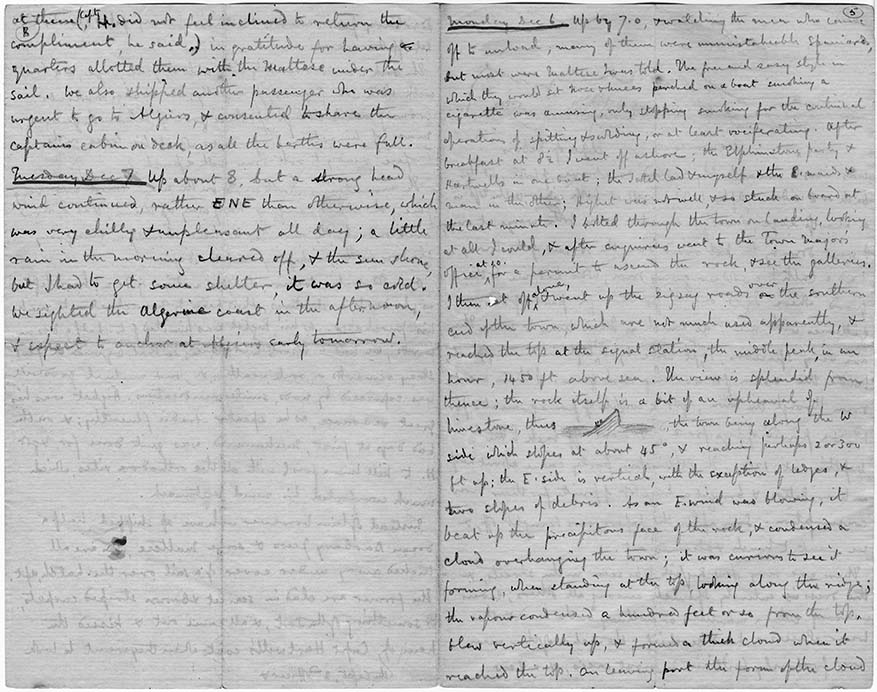 at these (Capt H. did not feel inclined to return the
8
compliment, he said,) in gratitude for having
quarters allotted them with the Maltese under the
sail. We also shipped another passenger who was
urgent to go to Algiers, & consented to share the
captains cabin on deck, as all the berths were full.
Tuesday Dec 7 Up about 8, but a strong head
wind continued, rather ENE than otherwise, which
was very chilly & unpleasant all day; a little
rain in the morning cleared off, & the sun shone,
but I had to get some shelter, it was so cold.
We sighted the Algerine coast in the afternoon,
& expect to anchor at Algiers early tomorrow.
5
Monday Dec 6 Up by 7.0, & watching the men who come
off to unload; many of them were unmistakeable Spaniards,
but most were Maltese I was told. The free and easy style in
which they would sit perched on a boat smoking a
cigarette was amusing, only stopping smoking for the
operations of spitting & scolding, or at least vociferating. After
breakfast at 8½ I went off ashore; the Elphinstone party &
Hartwells in one boat; the lad & myself & the E. maids &
man in the other; was not well & so stuck on board at
the last minute. I trotted through the town on landing, looking
at all I could, & after enquiries went to the Town Majors
office at 10. for a permit to ascend the rock, & see the galleries.
I then set off alone, & went up the zigzag roads over the southern
end of the town, which are not much used apparently, &
reached the top at the signal station, the middle peak, in an
hour, 1450 ft above sea. The view is splendid from
thence; the rock itself is a bit of an upheaval of
limestone, thus , the town being along the W
side which slopes at about 45°, & reaching perhaps 2 or 300
ft up; the E. side is vertical, with the exception of ledges, &
two slopes of debris. As an E. wind was blowing, it
beat up the precipitous face of the rock, & condensed a
cloud overhanging the town; it was curious to see it
forming, when standing at the top, looking along the ridge;
the vapour condensed a hundred feet or so from the top,
blew vertically up, & formed a thick cloud when it
reached the top. On leaving port the form of the cloud